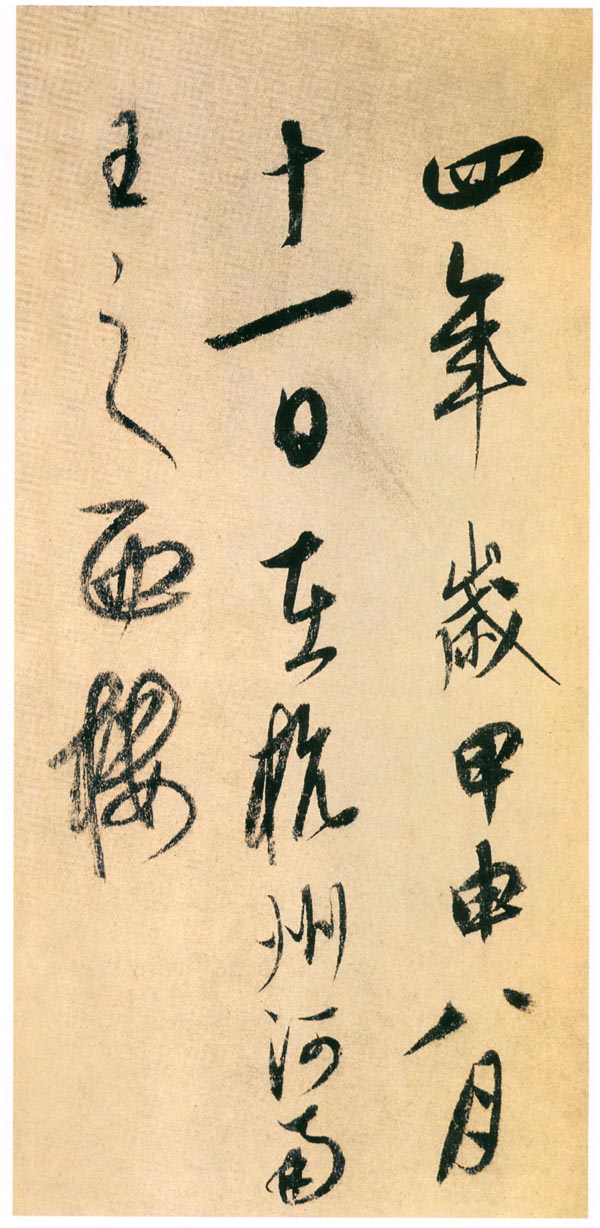 四年歲甲申八月
十一日在杭州河南
王之西樓